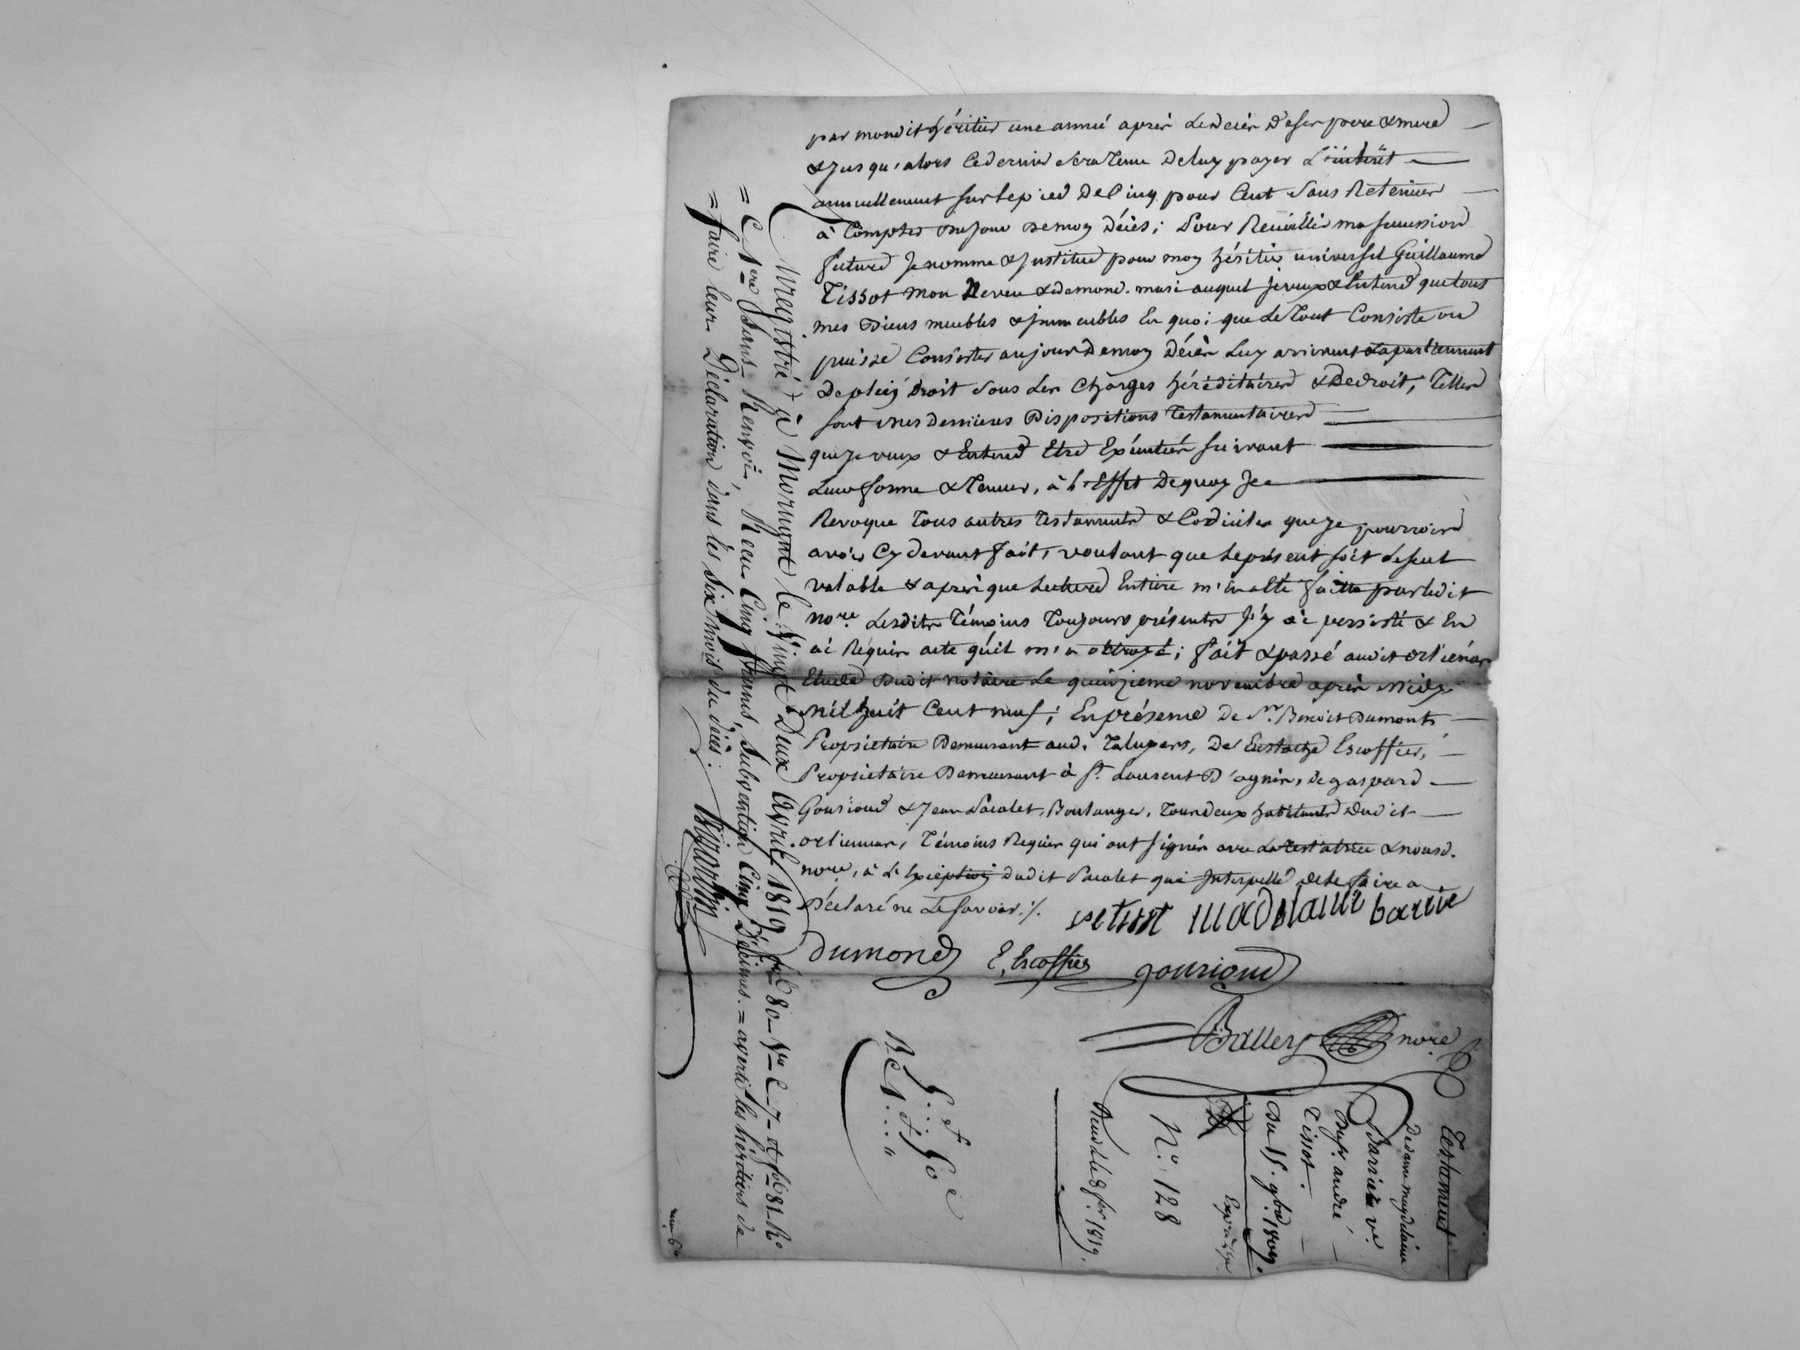 par mondit héritier une anneé après Le deces de ses pere & mere
& Jusqu'alors Ce dernier sera Tenu De luy payer L'intérêt
annuellement sur le pied De Cinq pour Cent Sans Retenue
à Compter du Jour De moy Décès; Pour Receuillir ma succession
future Je nomme & Institue pour moy héritier universel Guillaume
Tissot Mon Neveu & demond. mari auquel Je veux & Entend que tous
mes Biens meubles & Immeubles En quoi que Le Tout Consiste ou
puisse Consister au jour De moy Décès Luy arrivent & apartiennent
De plein Droit Sous Les Charges héréditaires & De droit, Telles
sont mes dernieres Dispositions Testamentaires
que Je veux & Entend Etre Exécutées suivant
Leur forme & Teneur, à L'Effet De quoy Je
Revoque Tous autres Testaments & Codiciles que Je pourrois
avoir Cy devant fait, voulant que Le présent soit Le seul
valable & après que Lecture Entiere m'en a été faitte par Ledit
nore. Lesdits Témoins Toujours présents J'y ai persisté & En
ai Réquis acte qu'il m'a octroyé; fait & passé audit orliénas
Etude Dudit notaire Le quinzieme novembre après midy
Mil huit Cent neuf; En présence de Sr. Benoit Dumont
Propriétaire Demeurant aud. Taluyers, De Eustache Escoffier,
Propriétaire Demeurant à St. Laurent D'agnin, de gaspard
Gourioud & Jean Pacalet, Boulanger, Tous deux habitants Dudit
orlienas, Témoins Requis qui ont signés avec La Testatrice & nousd.
nore, à L'Exception dudit Pacalet qui Interpellé de Le faire a
Déclaré ne Le savoir ./.
Magdelaine barrie
Dumond E. Escoffier gourioud
Ballery nore
Enregistré à Mornant le Vingt Deux Avril 1819, fo 80 Vo C 7 et fo 81 Ro
= C 1ere Sans Renvoi, Recu Cinq francs, Subvention Cinq Décimes. = averti les héritiers de
= faire leur Déclaration dans les Six Mois du décès.
5 f 50 c
Testament
De dame magdelaine
Barriere ve.
Sr. andré
Tissot.
Du 15. gbre. 1809.
Expédiée
No. 128